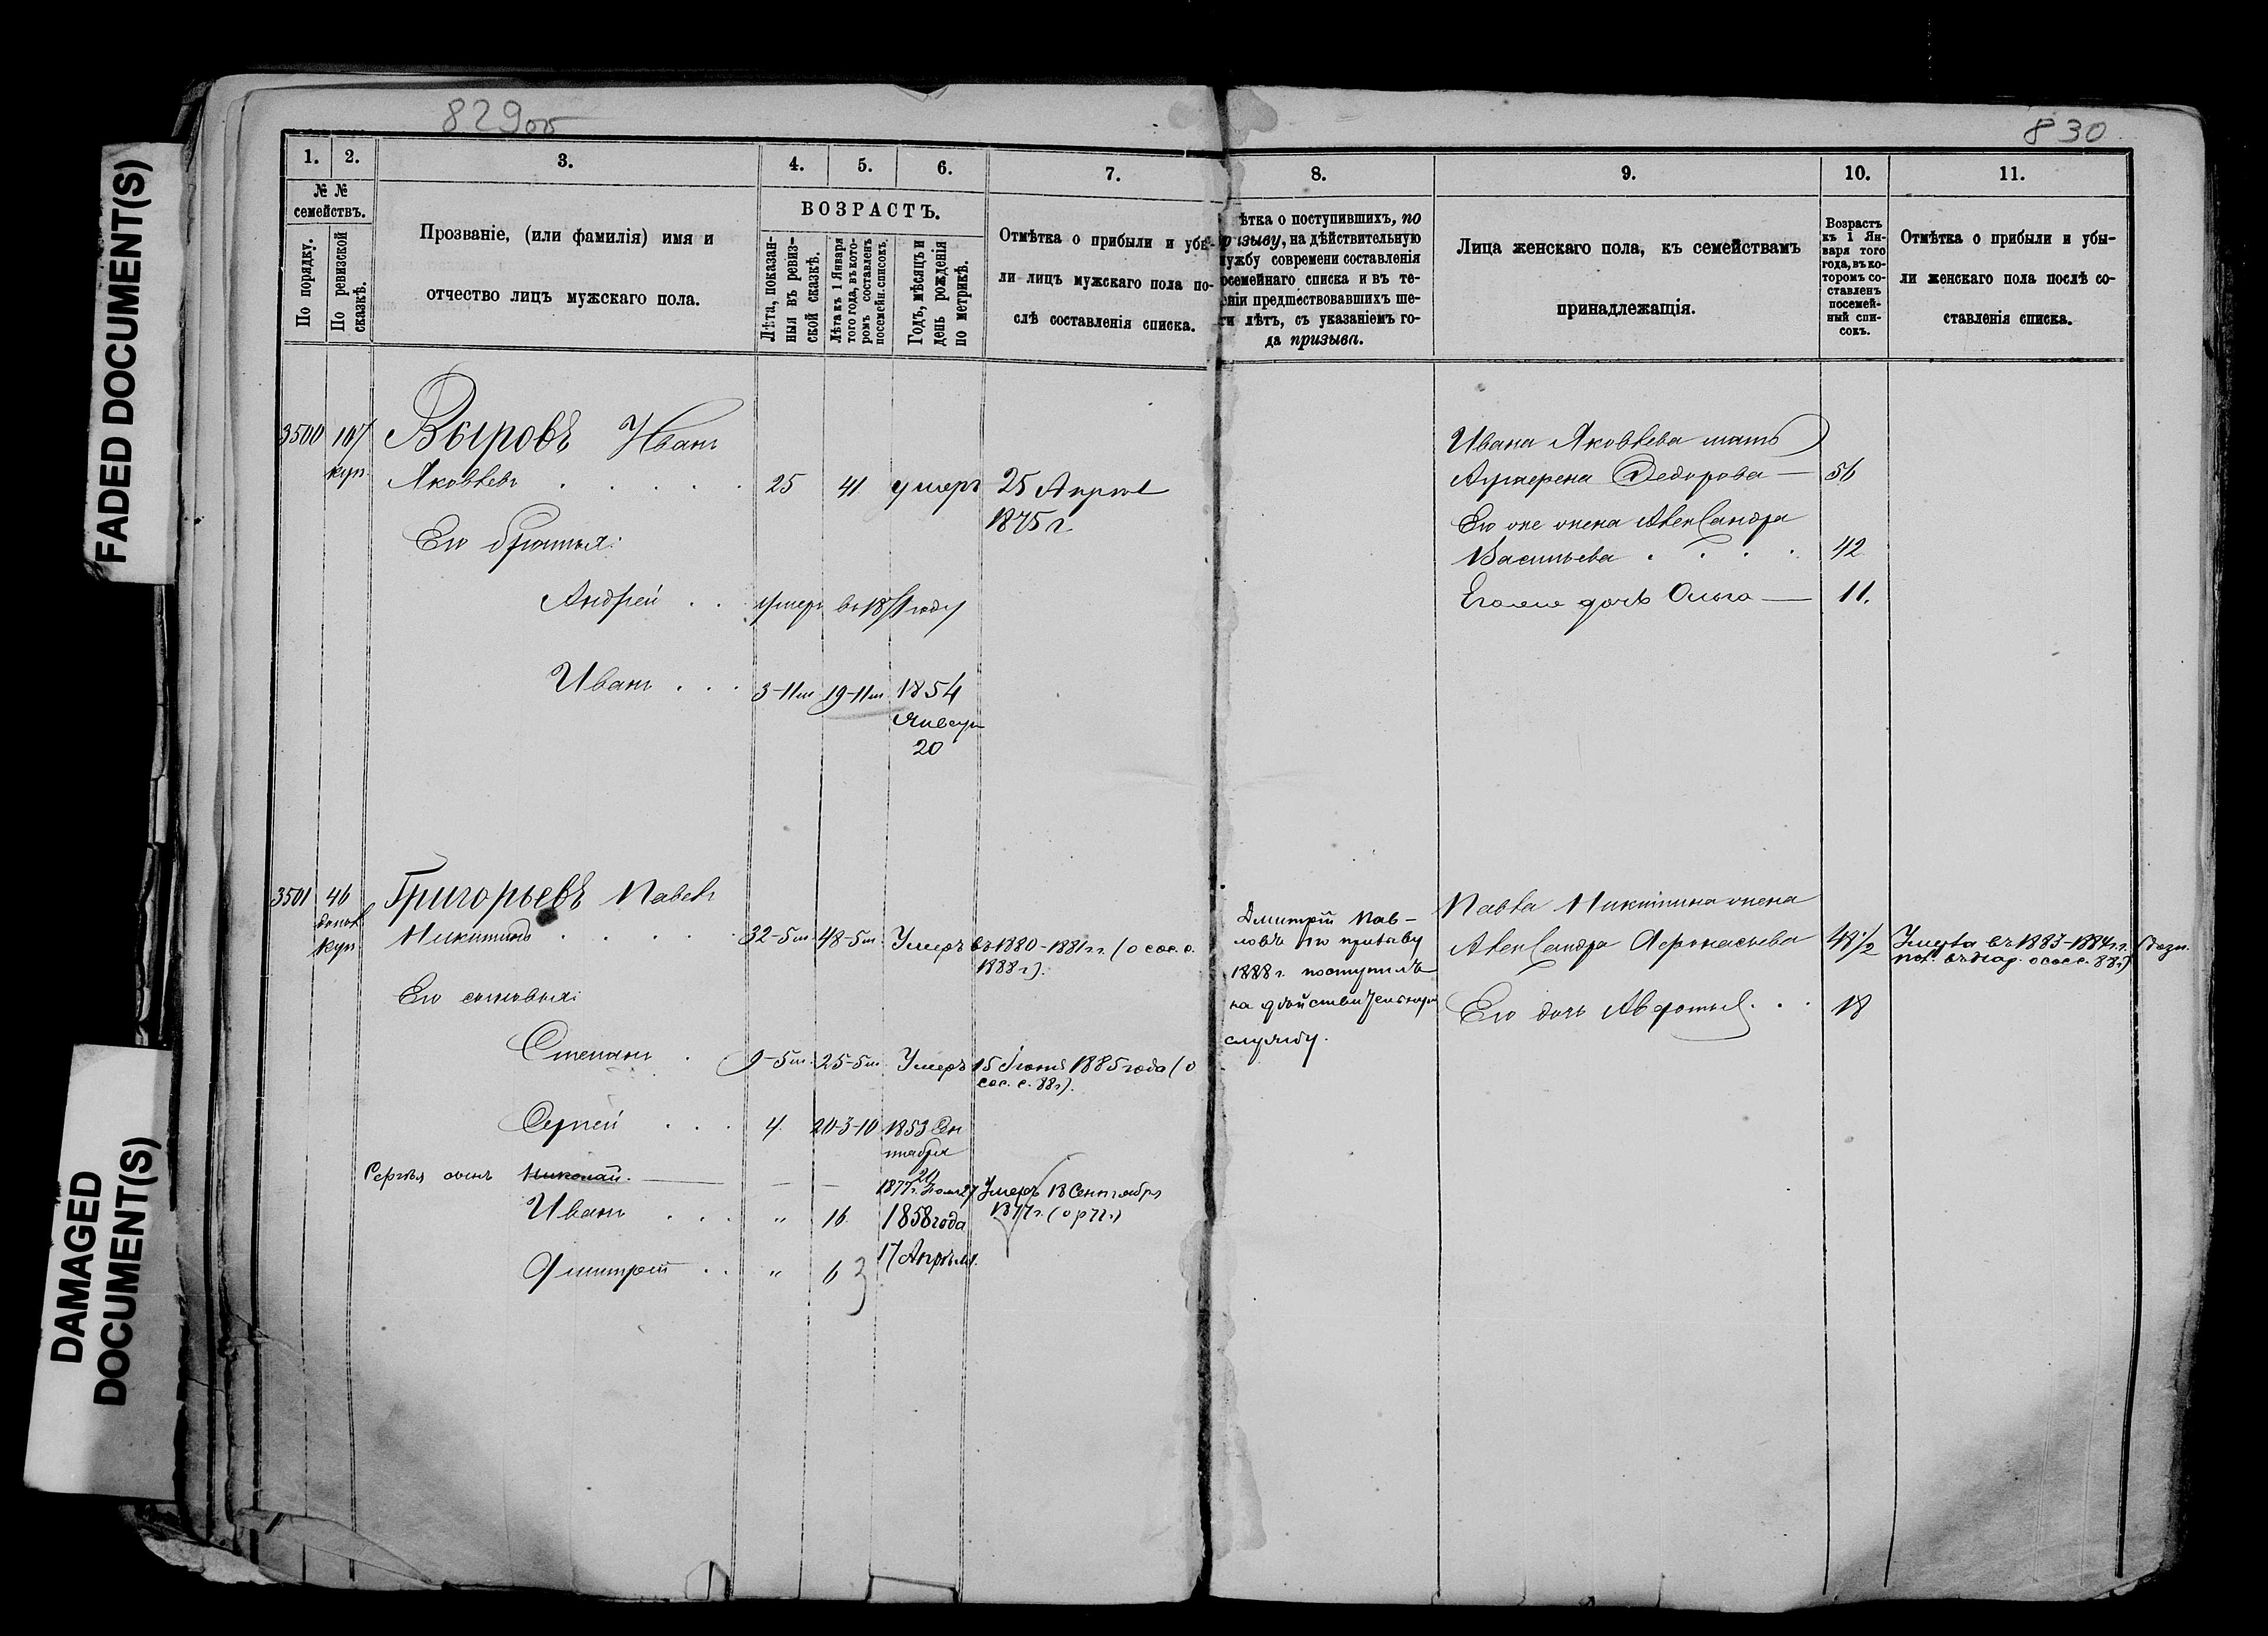 829об
830
FADED DOCUMENT(S)
DAMAGED DOCUMENT(S)
1. 2. 3. 4. 5. 6. 7. 8. 9. 10. 11.
№ № семействъ.
По порядку.
По ревизской сказкѣ.
Прозваніе, (или фамилія) имя и
отчество лицъ мужскаго пола.
ВОЗРАСТЪ.
Лѣта, показанныя въ ревизской сказкѣ.
Лѣта къ 1 Января того года, въ которомъ составленъ посемейн. списокъ.
Годъ, мѣсяцъ и день рожденія по метрикѣ.
Отмѣтка о прибыли и убы-
ли лицъ мужскаго пола по-
слѣ составленія списка.
ѣтка о поступившихъ, по
ризыву, на дѣйствительную
ужбу современи составленія
осемейнаго списка и въ те-
еніи предшествовавшихъ ше-
ти лѣтъ, съ указаніемъ го-
да призыва.
Лица женскаго пола, къ семействамъ
принадлежащія.
Возрастъ
къ 1 Ян-
варя того
года, въ ко-
торомъ со-
ставленъ
посемей-
ный спи-
сокъ.
Отмѣтка о прибыли и убы-
ли женскаго пола послѣ со-
ставленія списка.
3500 107 Выровъ Иванъ
куп. Яковлевъ 25 41 умеръ 25 Апрѣл
1875 г.
Его братья:
Андрей умеръ въ 1871 году
Иванъ 3-11м 19-11м 1854
Январ
20
Ивана Яковлева мать
Федорова 56
Его же жена Александра
Васильева 42
Его же дочь Ольга 11.
3501 46 Григорьевъ Павелъ
куп. Никитинъ 32-5м. 48-5м. Умеръ въ 1880-1881 г.г. (о сос. с.
1888 г).
Его сыновья:
Степанъ 9-5м. 25-5м. Умеръ 15 Іюня 1885 года (о
сос. с. 88 г).
Сергей 4. 20-3-10 1853 Сен
тября
20
Сергѣя сынъ Николай. — — 1877 г. 27 Умеръ 18 Сентября
1877 г.
Иванъ " 16 1858 года
17 Апрѣля.
Дмитрій " 6
Дмитрій Пав-
ловъ по призыву
1888 г. поступилъ
на дѣйствительную
службу.
Павла Никитина жена
Александра Афонасьева 48 1/2 Умерла въ 1883-1884 г.г.
Его дочь Авдотья 18